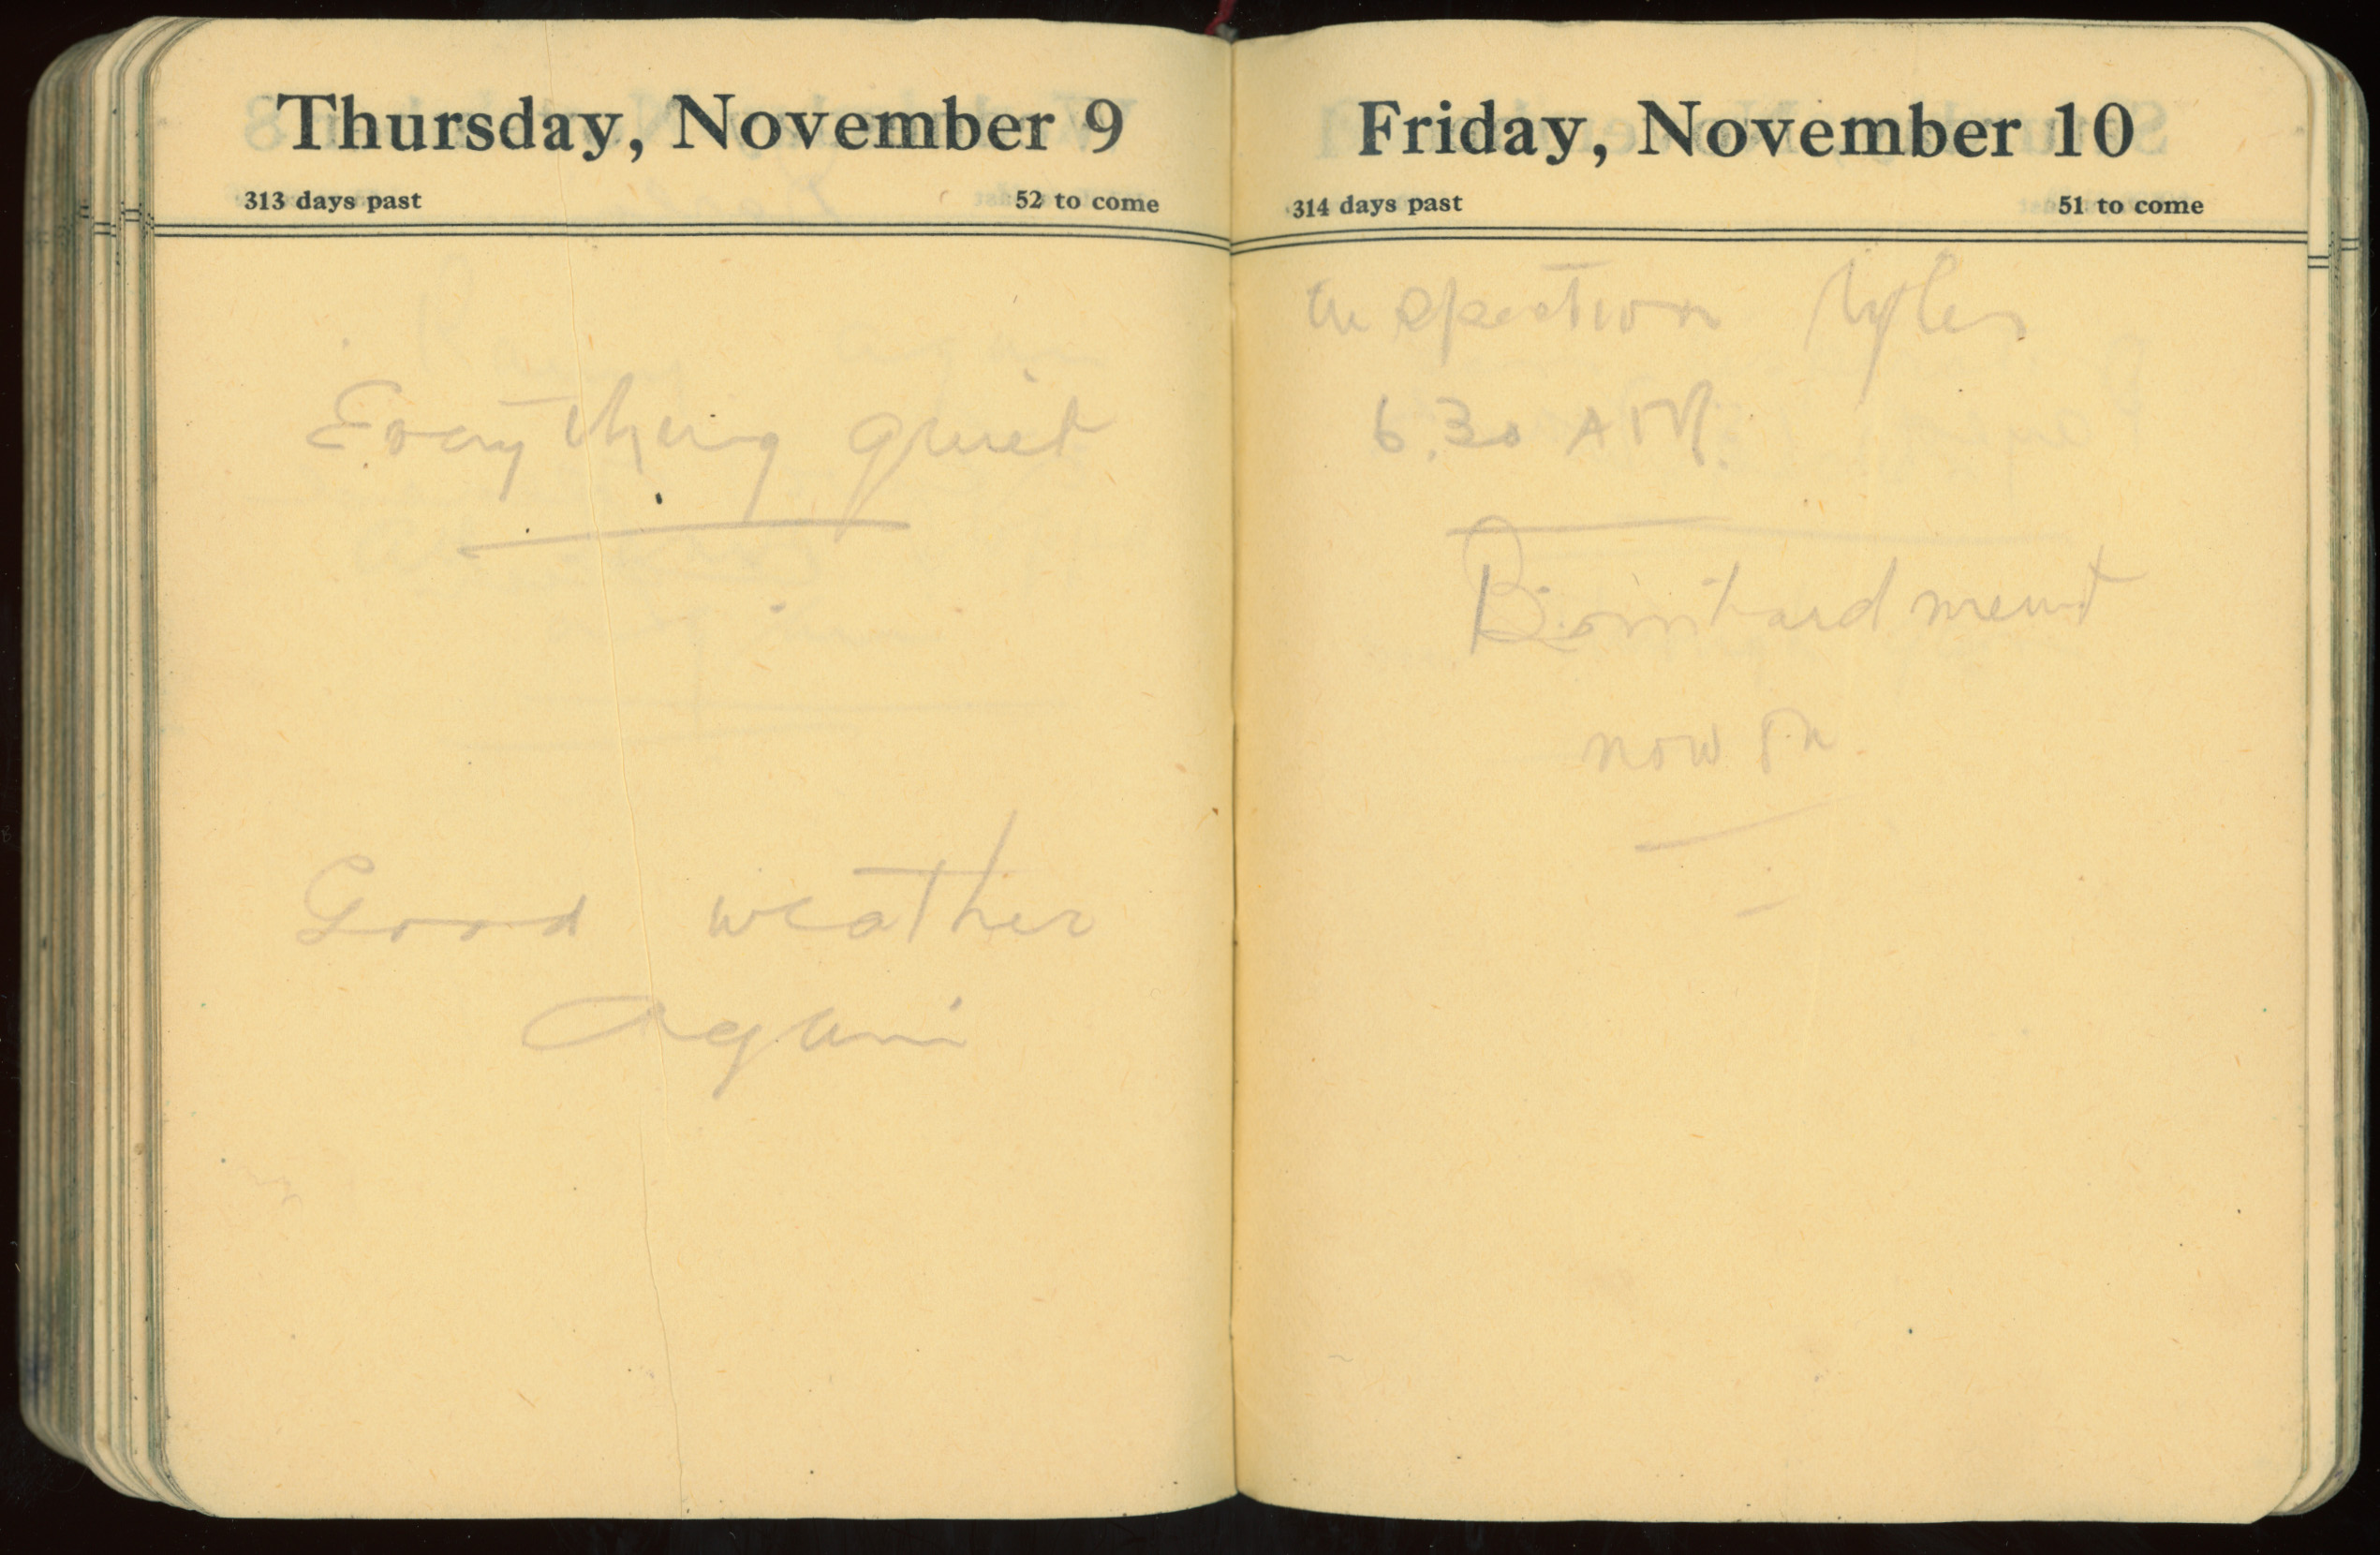 Thursday, November 9
313 days past 52 to come
Everything quiet
Good weather
Again
Friday, November 10
314 days past 51 to come
Inspection
6.30 AM.
Bombardment
now on